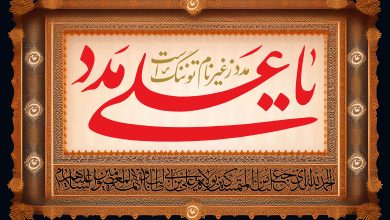 مدد ز غیر نام تو ننگ است
یا علی مدد
الحمد لله الذی جعلنا من المتمسکین بولایة علی بن ابی طالب و الائمة المعصومین علیهم السلام